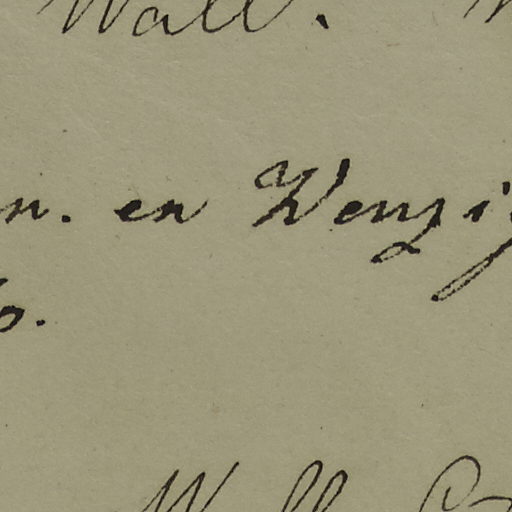 Wall.
n. en Wenzi
6.
Wall